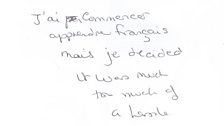 J'ai commencer
apprendre français
mais je decided
it was much
too much of
a hassle